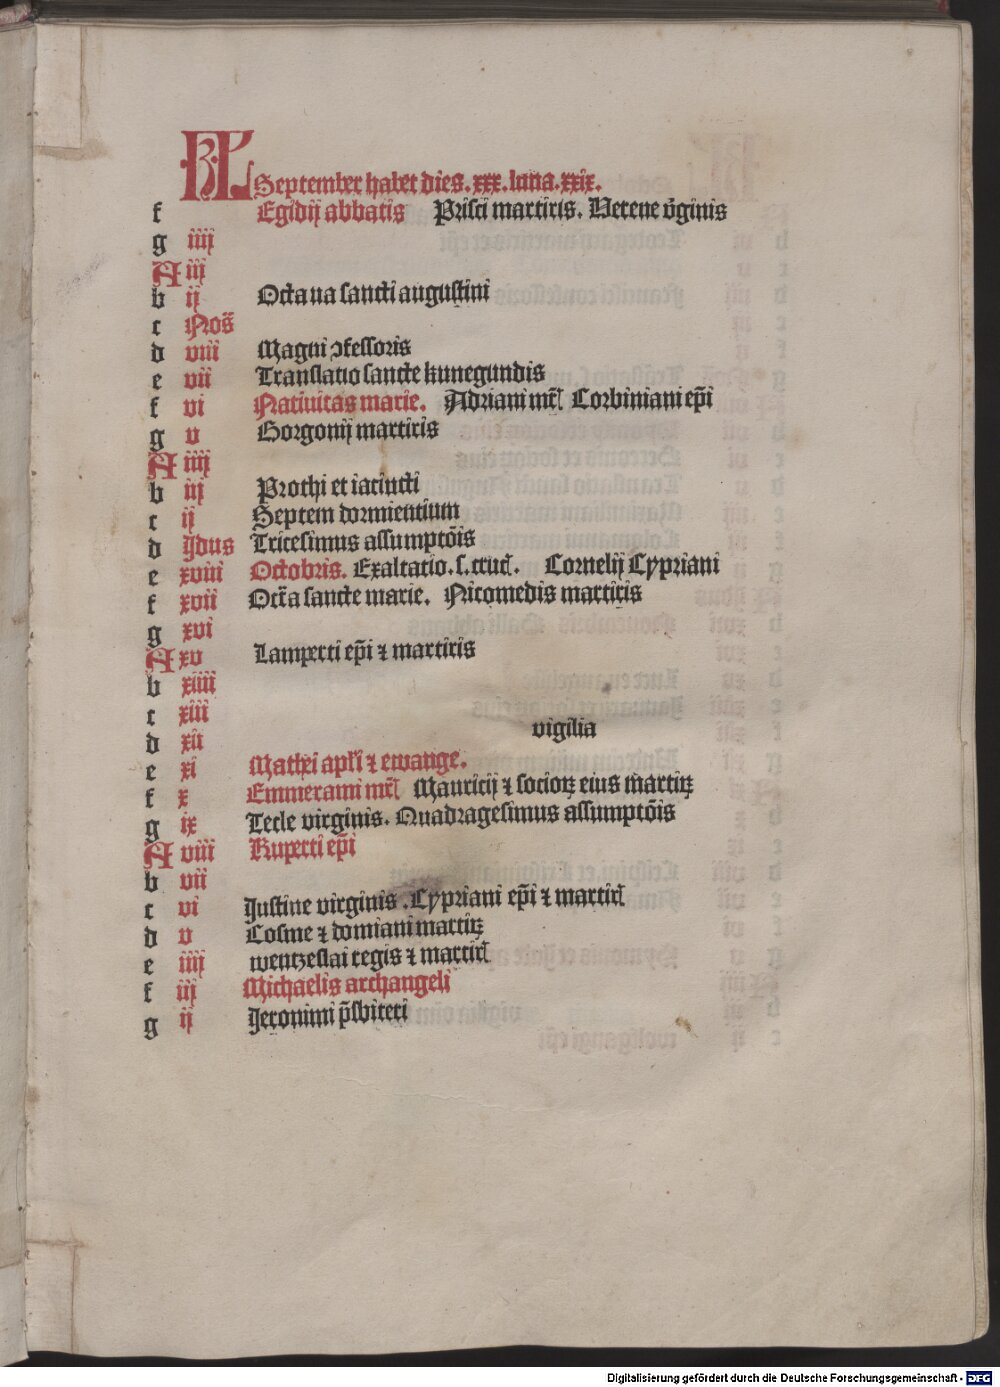 KL September habet dies. xxx. luna. xxix.
f Egidij abbatis Prisci martiris. Verene v̄ginis
g iiij
A iij
b ij Octaua sancti augustini
c Noñ
d viii Magni ꝯfessoris
e vii Translatio sancte kunegundis
f vi Natiuitas marie. Adriani mr̄t Corbiniani ep̄i
g v Gorgonij martiris
A iiij
b iij Prothi et iacincti
c ij Septem dormientium
d Jdus Tricesimus assumptōis
e xviii Octobris. Exaltatio. s. cruc̄. Cornelij Cypriani
f xvii Oct̄a sancte marie. Nicomedis martiris
g xvi
A xv Lamperti ep̄i ⁊ martiris
b xiiii
c xiii
d xii vigilia
e xi Mathei apl̄i ⁊ ewange.
f x Emmerami mr̄t Mauricij ⁊ socioꝝ eius martiꝝ
g ix Tecle virginis. Quadragesimus assumptōis
A viii Ruperti ep̄i
b vii
c vi Justine virginis. Cypriani ep̄i ⁊ martir̄
d v Cosme ⁊ domiani martiꝝ
e iiij wentzeslai regis ⁊ martir̄
f iij Michaelis archangeli
g ij Jeronimi p̄sbiteri
Digitalisierung gefördert durch die Deutsche Forschungsgemeinschaft - DFG